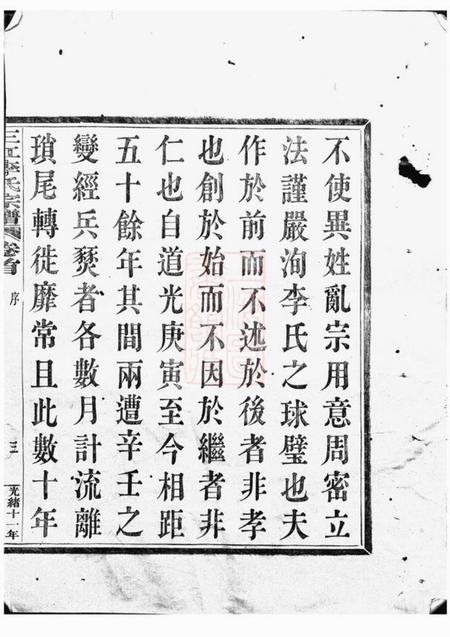 不使異姓亂宗用意周密立
法謹嚴洵李氏之球璧也夫
作於前而不述於後者非孝
也創於始而不因於繼者非
仁也自道光庚寅至今相距
五十餘年其間兩遭辛壬之
變經兵燹者各數月計流離
瑣尾轉徙靡常且此數十年
三江李氏宗譜
卷首
序
三
光緒十一年